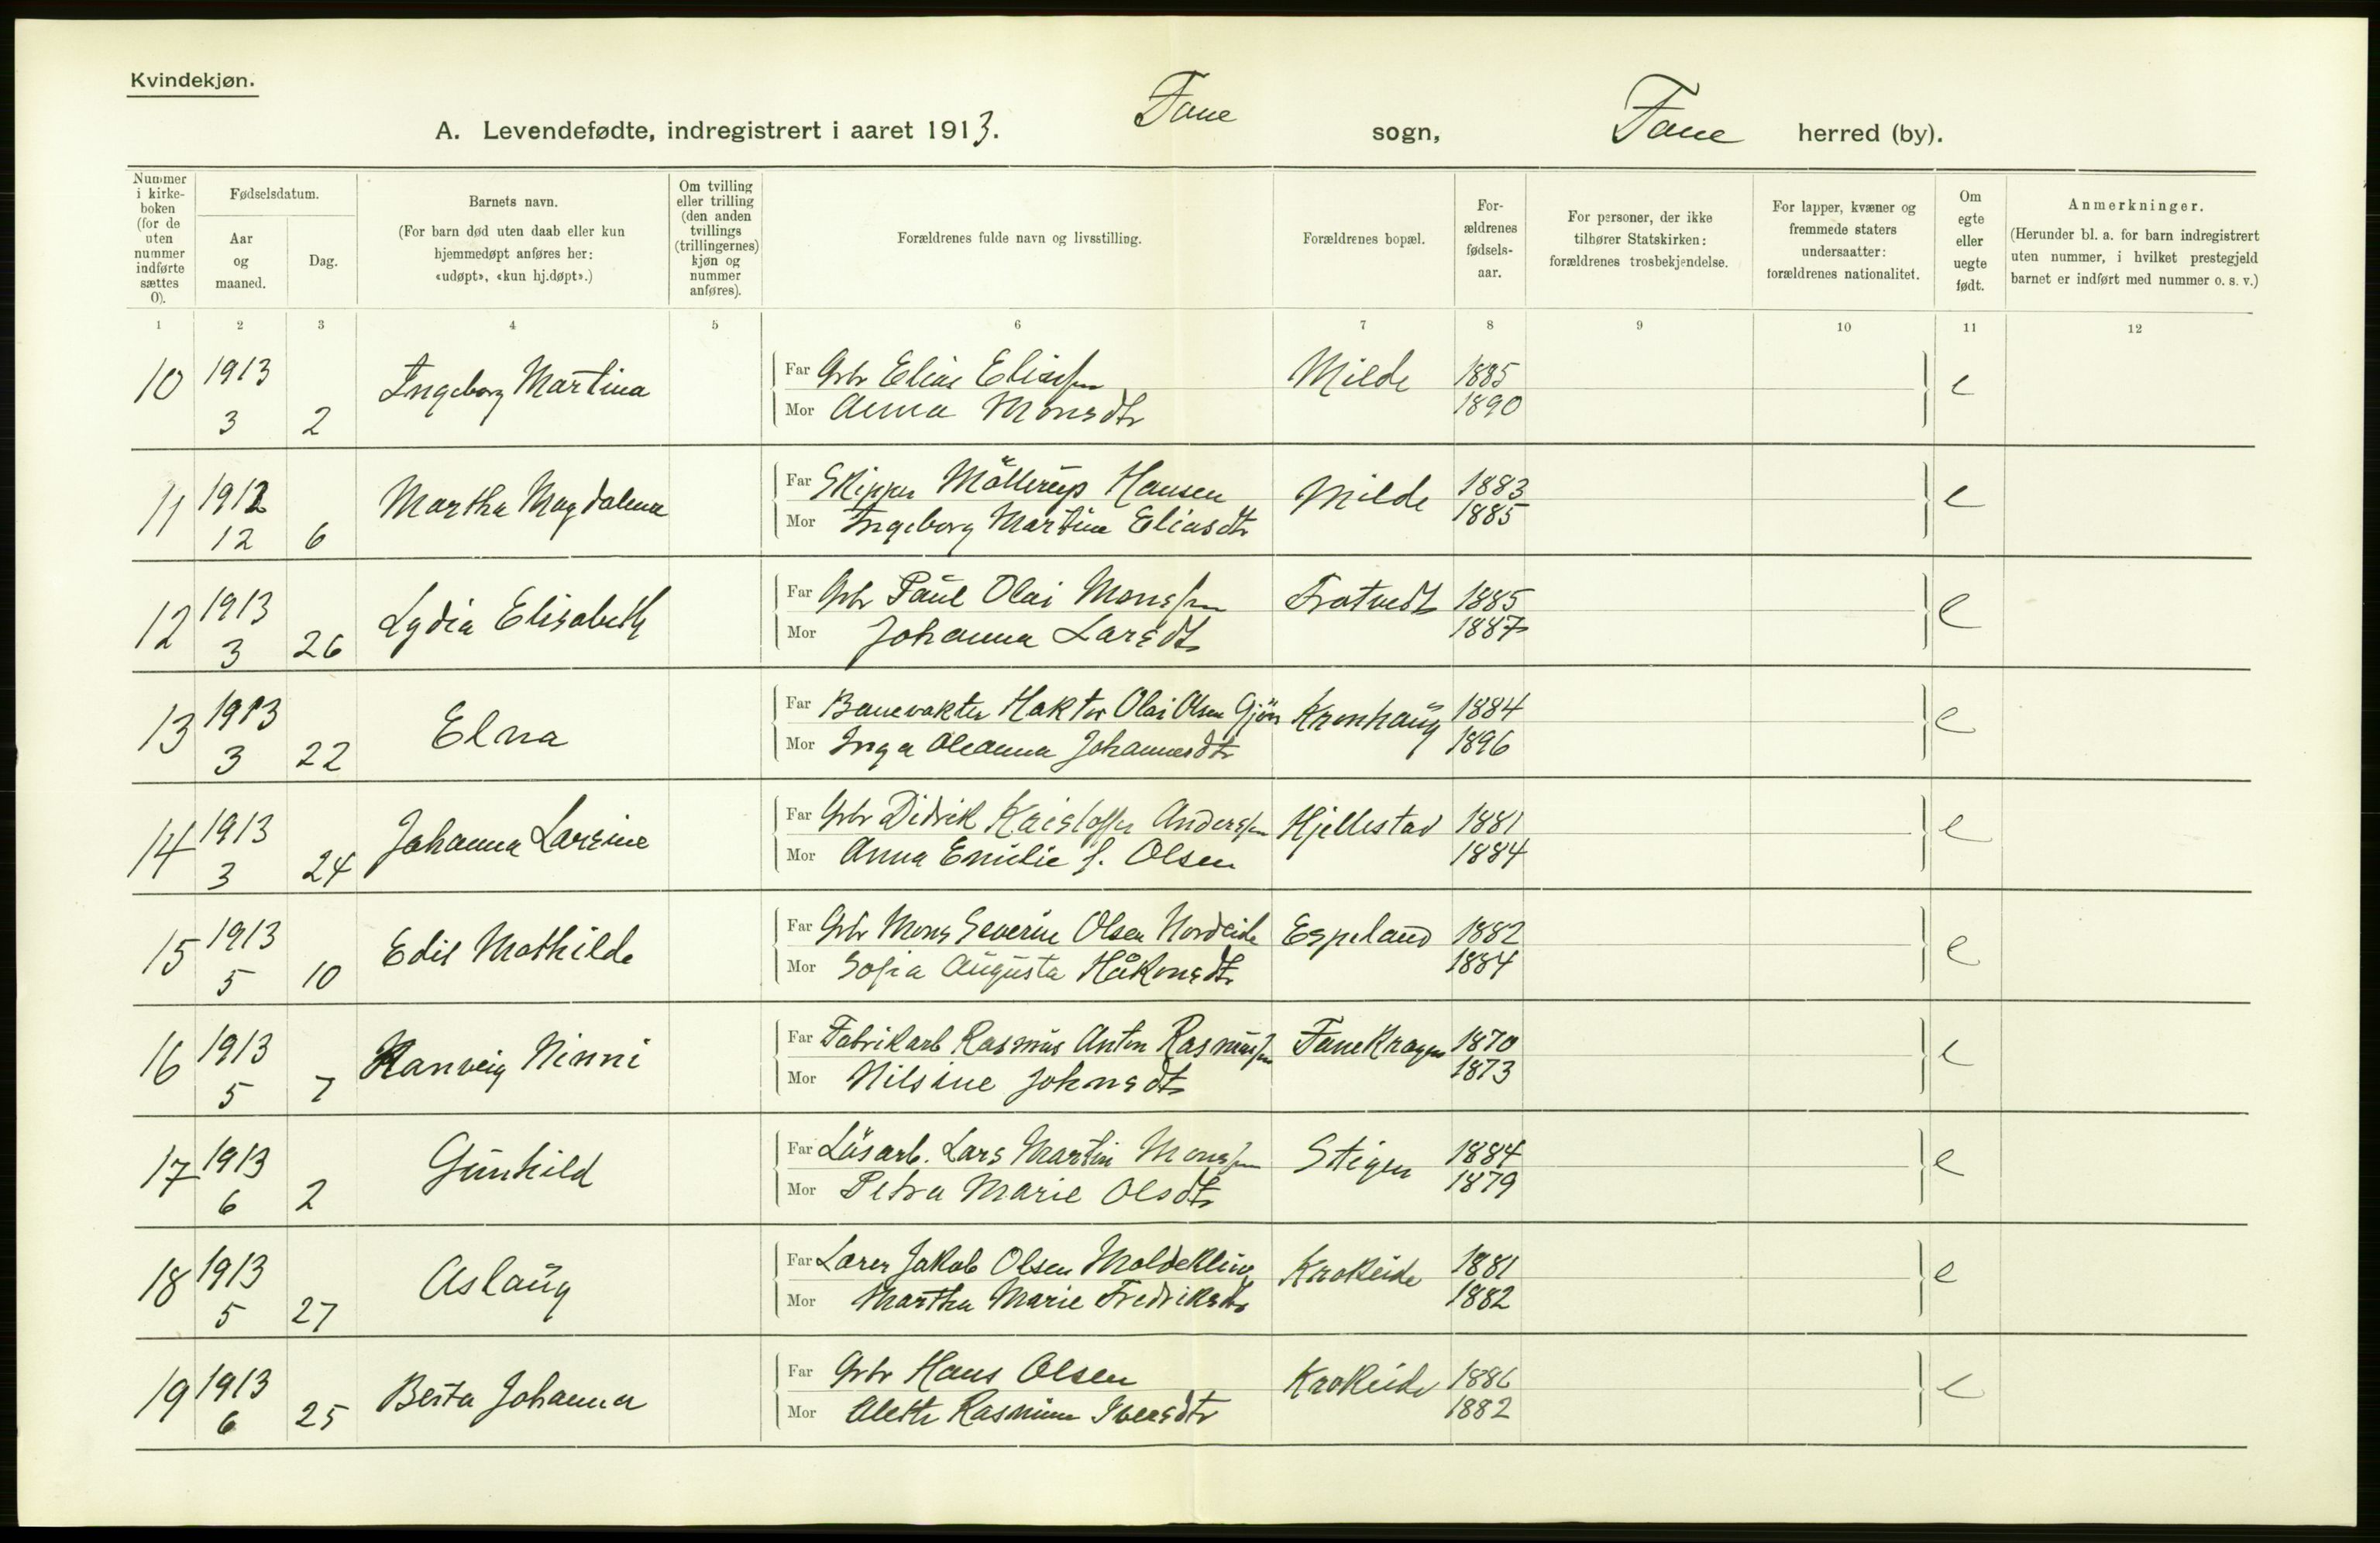 Kvindekjøn.
A. Levendefødte, indregistrert i aaret 1913. Fane sogn, Fane herred (by).
Nummer i kirke-boken (for de uten nummer indførte sættes 0).
Fødselsdatum.
Aar og maaned.
Dag.
Barnets navn.
(For barn død uten daab eller kun hjemmedøpt anføres her: «udøpt», «kun hj.døpt».)
Om tvilling eller trilling (den anden tvillings (trillingernes) kjøn og nummer anføres).
Forældrenes fulde navn og livsstilling.
Forældrenes bopæl.
For-ældrenes fødsels-aar.
For personer, der ikke tilhører Statskirken: forældrenes trosbekjendelse.
For lapper, kvæner og fremmede staters undersaatter: forældrenes nationalitet.
Om egte eller uegte født.
Anmerkninger.
(Herunder bl. a. for barn indregistrert uten nummer, i hvilket prestegjeld barnet er indført med nummer o. s. v.)
1 2 3 4 5 6 7 8 9 10 11 12
10 1913 3 2 Ingeborg Martina Far Grbr Elias Eliassen Milde 1885 e
Mor Anna Monsdtr 1890
11 1912 12 6 Martha Magdalena Far Skipper Möllerup Hansen Milde 1883 e
Mor Ingeborg Martine Eliasdtr 1885
12 1913 3 26 Lydia Elisabeth Far Grbr Paul Olai Monssen Tratvedt 1885 e
Mor Johanna Larsdtr 1887
13 1913 3 22 Elna Far Banevakter Haktor Olai Olsen Gjøn Kronhaug 1884 e
Mor Inga Oleanna Johannesdtr 1896
14 1913 3 24 Johanna Larsine Far Grbr Didrik Kristoffer Anderssen Hjellestad 1881 e
Mor Anna Emilie f. Olsen 1884
15 1913 5 10 Edit Mathilde Far Grbr Mons Severin Olsen Nordeide Espeland 1882 e
Mor Sofia Augusta Håkonsdtr 1884
16 1913 5 7 Ranveig Ninni Far Fabrikarb Rasmus Anton Rasmussen Fanekragen 1870 e
Mor Nilsine Johnsdtr 1873
17 1913 6 2 Gunhild Far Lösarb. Lars Martin Monssen Stigen 1884 e
Mor Petra Marie Olsdtr 1879
18 1913 5 27 Aslaug Far Lærer Jakob Olsen Moldeklev Krokeide 1881 e
Mor Martha Marie Fredriksdtr 1882
19 1913 6 25 Berta Johanna Far Grbr Hans Olsen Krokeide 1886 e
Mor Aleth Rasmine Iversdtr 1882